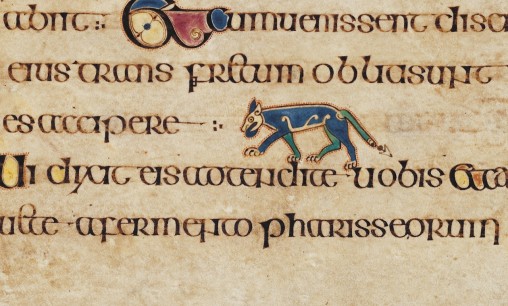 abiit :· Et cum uenissent disci
eius trans fretum obliti sunt
es accipere :·
ui dixit eis intendite uobis et ca
uete a fermento pharisseorum